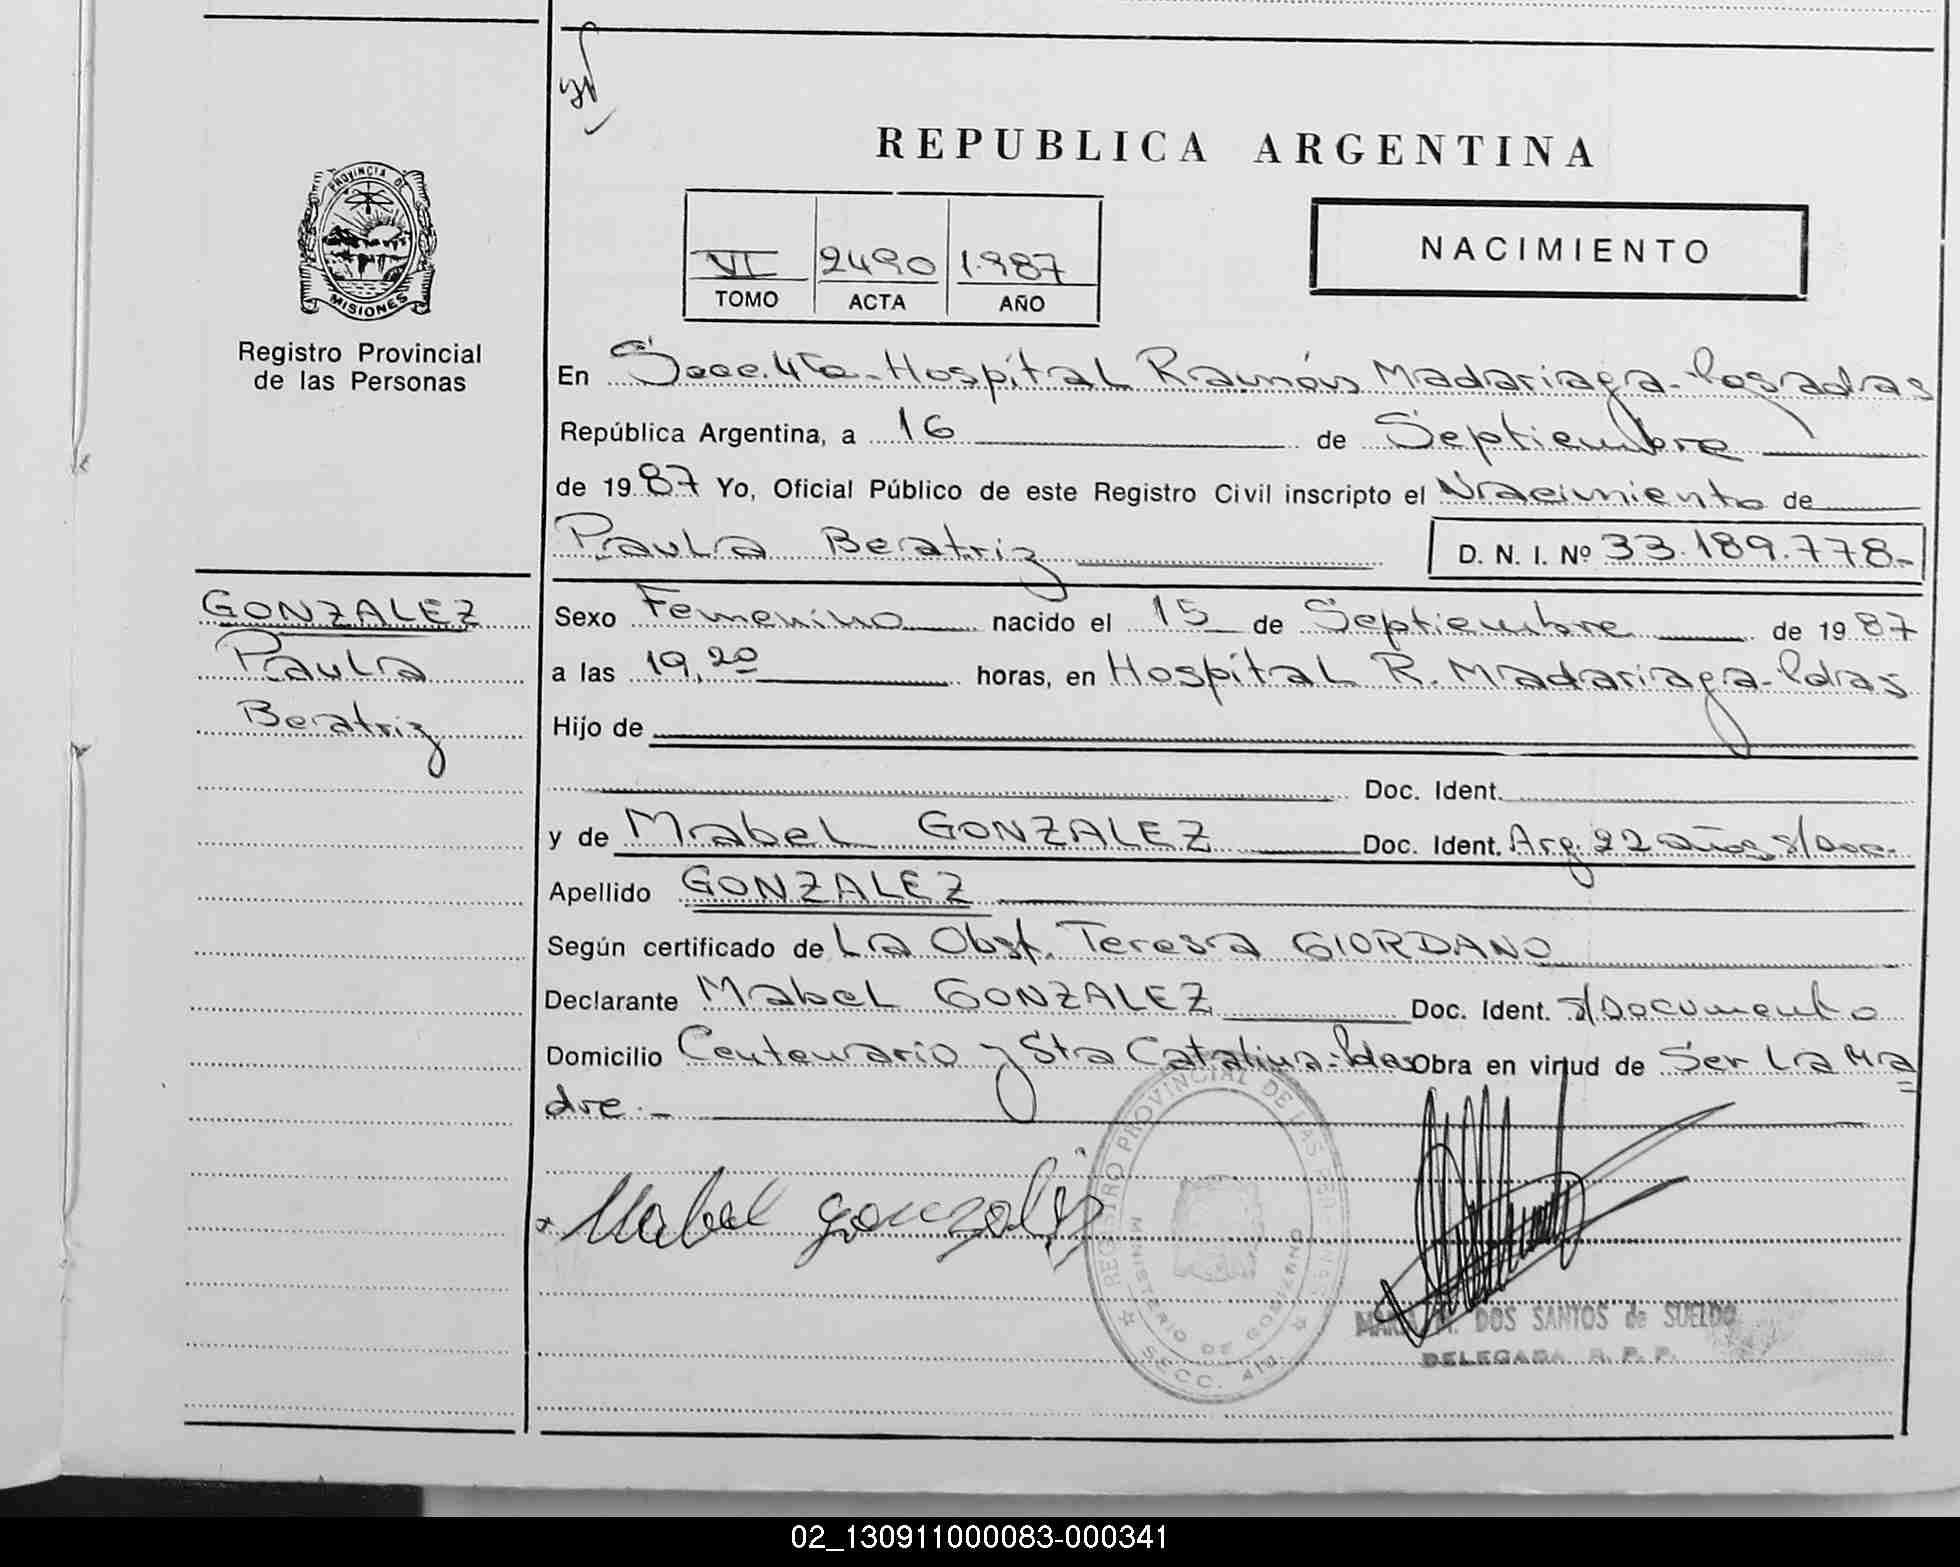 REPUBLICA ARGENTINA
PROVINCIA DE
MISIONES
Registro Provincial
de las Personas
VI 2490 1.987
TOMO ACTA AÑO
NACIMIENTO
En Secc. 4ta - Hospital Ramón Madariaga - Posadas
República Argentina, a 16 de Septiembre
de 1987 Yo, Oficial Público de este Registro Civil inscripto el Nacimiento de
Paula Beatriz D. N. I. Nº 33.189.778-
GONZALEZ
Paula
Beatriz
Sexo Femenino nacido el 15 de Septiembre de 1987
a las 19,20 horas, en Hospital R. Madariaga - Pdas
Hijo de
Doc. Ident.
y de Mabel GONZALEZ Doc. Ident. Arg. 22 años s/Doc.
Apellido GONZALEZ
Según certificado de La Obst. Teresa GIORDANO
Declarante Mabel GONZALEZ Doc. Ident. s/Documento
Domicilio Centenario y Sta Catalina - Pdas Obra en virtud de Ser La Ma
dre.-
Mabel gonzalez
REGISTRO PROVINCIAL DE LAS PERSONAS
MINISTERIO DE GOBIERNO
SECC. 4ta.
MARIA M. DOS SANTOS de SUELDO
DELEGADA R. P. P.
02_130911000083-000341